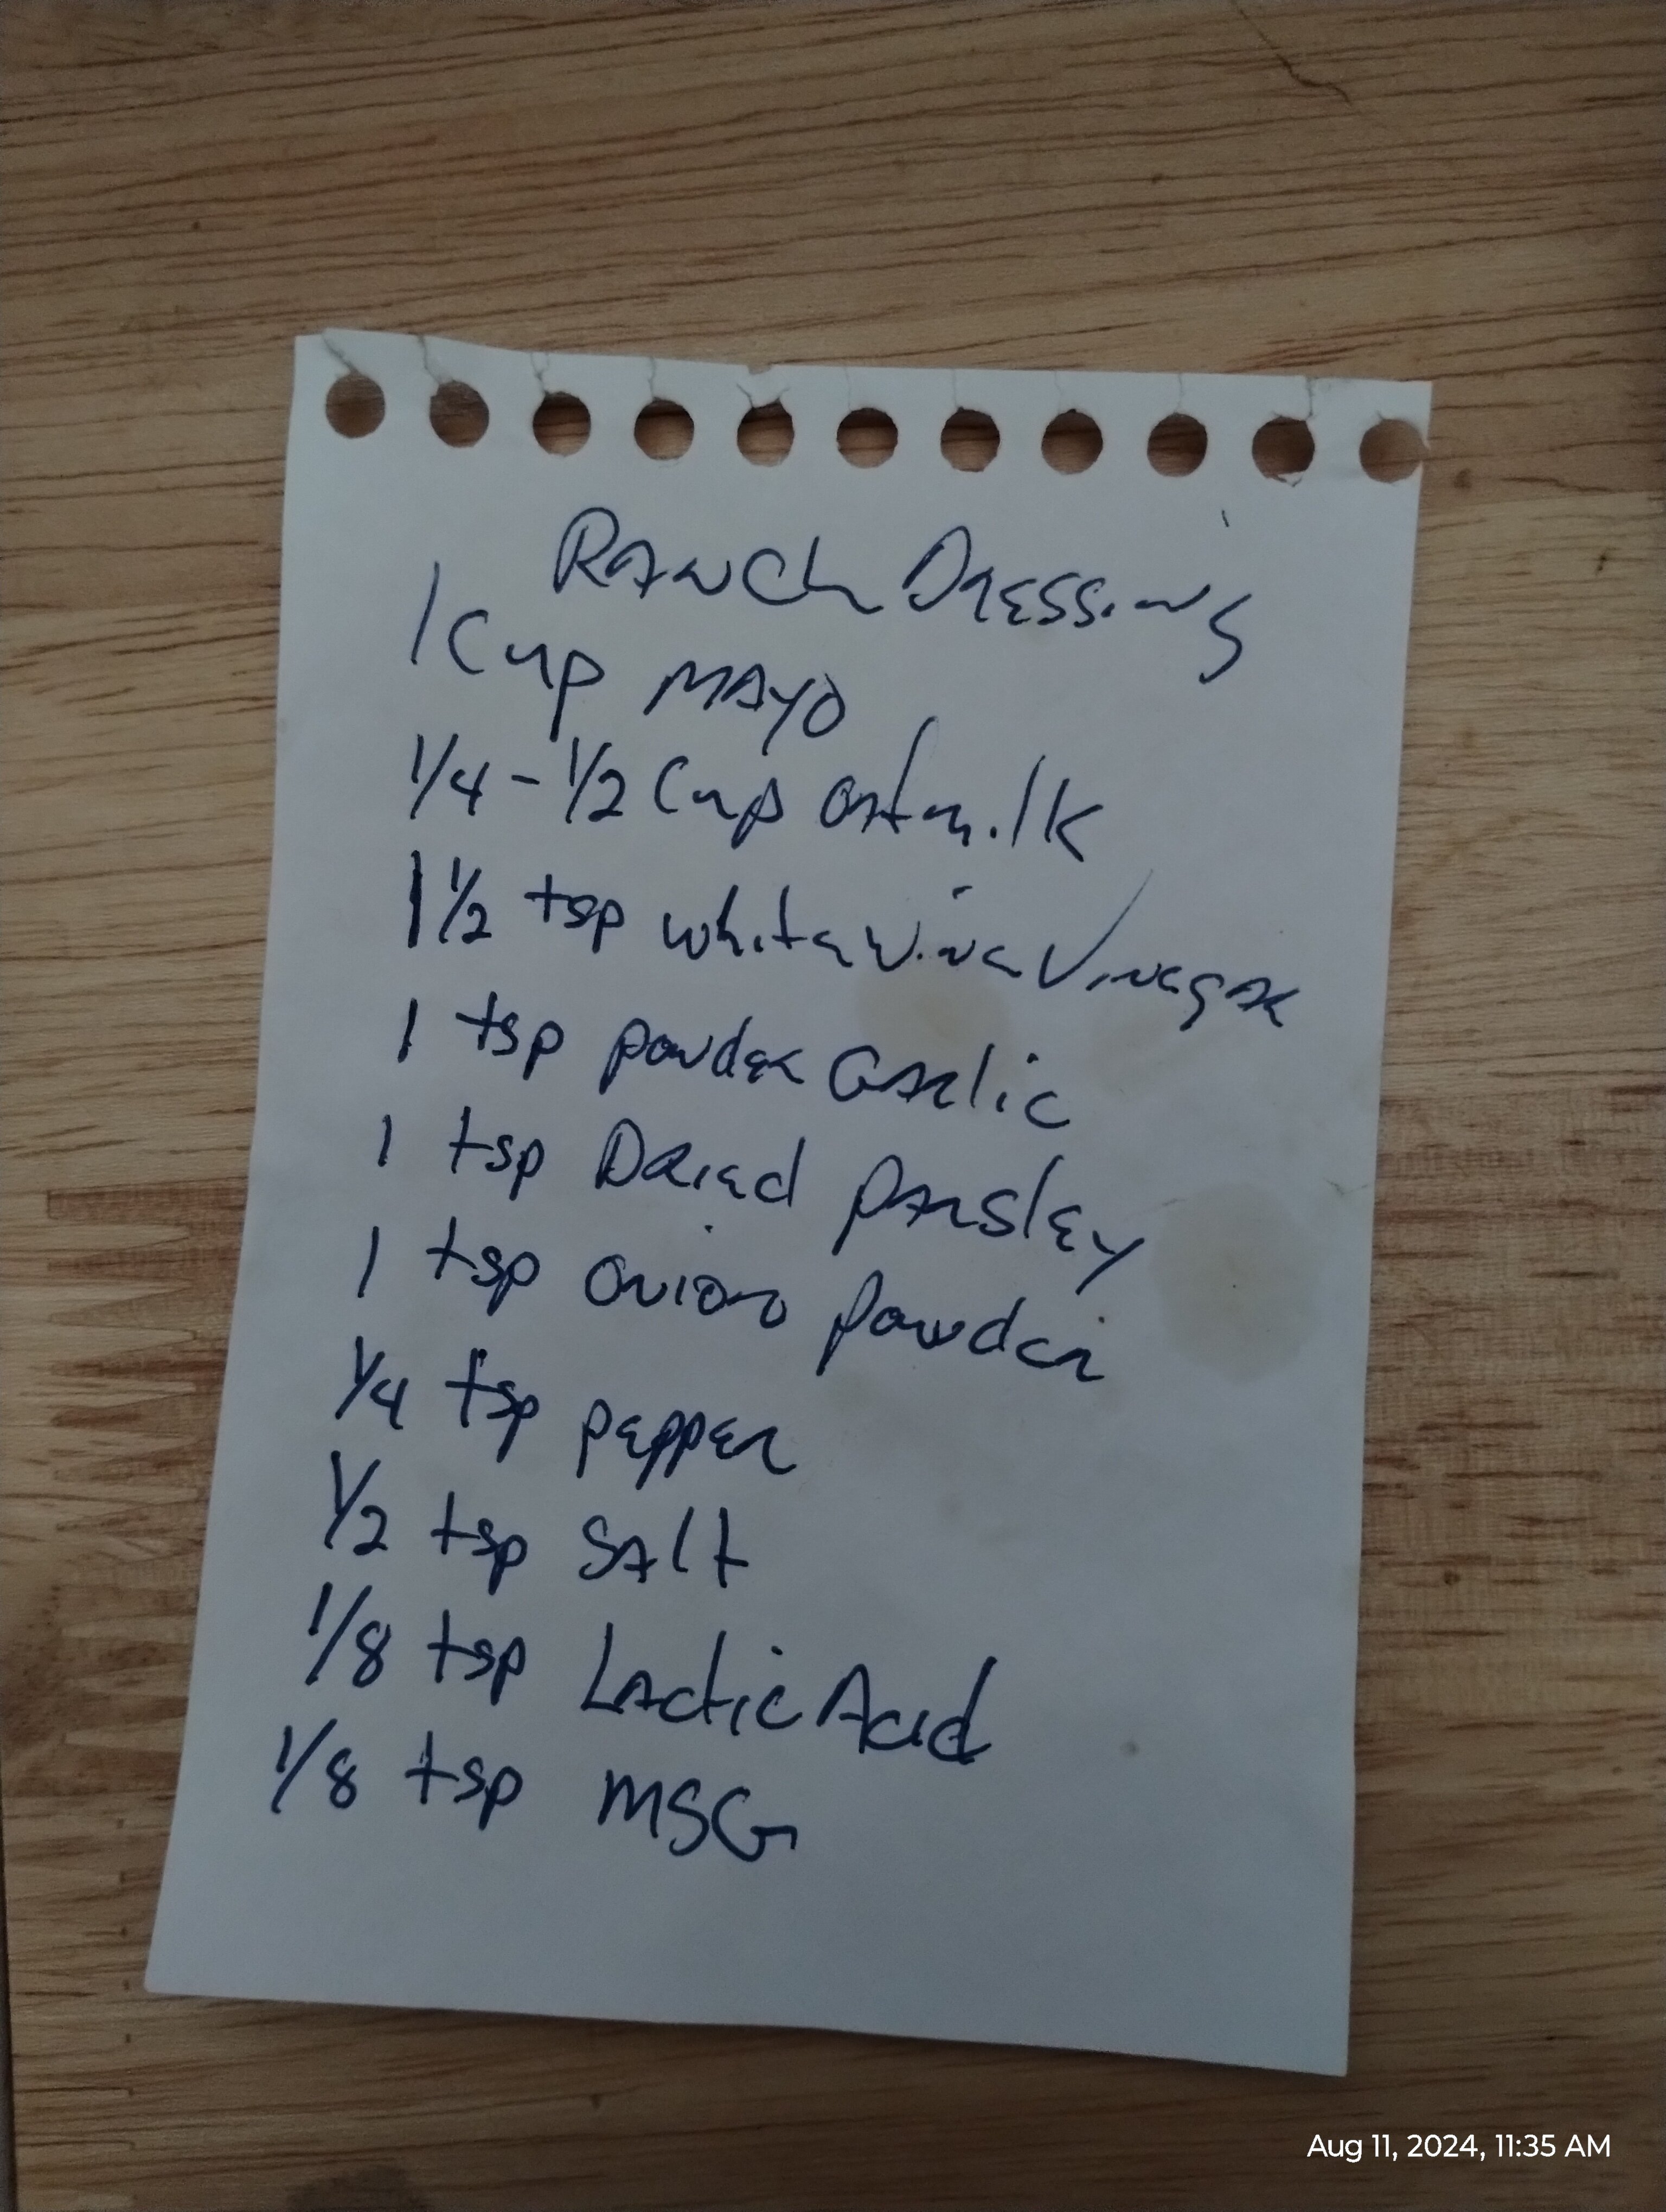 Ranch Dressing
1 Cup MAYO
1/4 - 1/2 Cup oatmilk
1 1/2 tsp white wine Vinegar
1 tsp powder Garlic
1 tsp Dried parsley
1 tsp onion powder
1/4 tsp pepper
1/2 tsp SALT
1/8 tsp Lactic Acid
1/8 tsp MSG
Aug 11, 2024, 11:35 AM